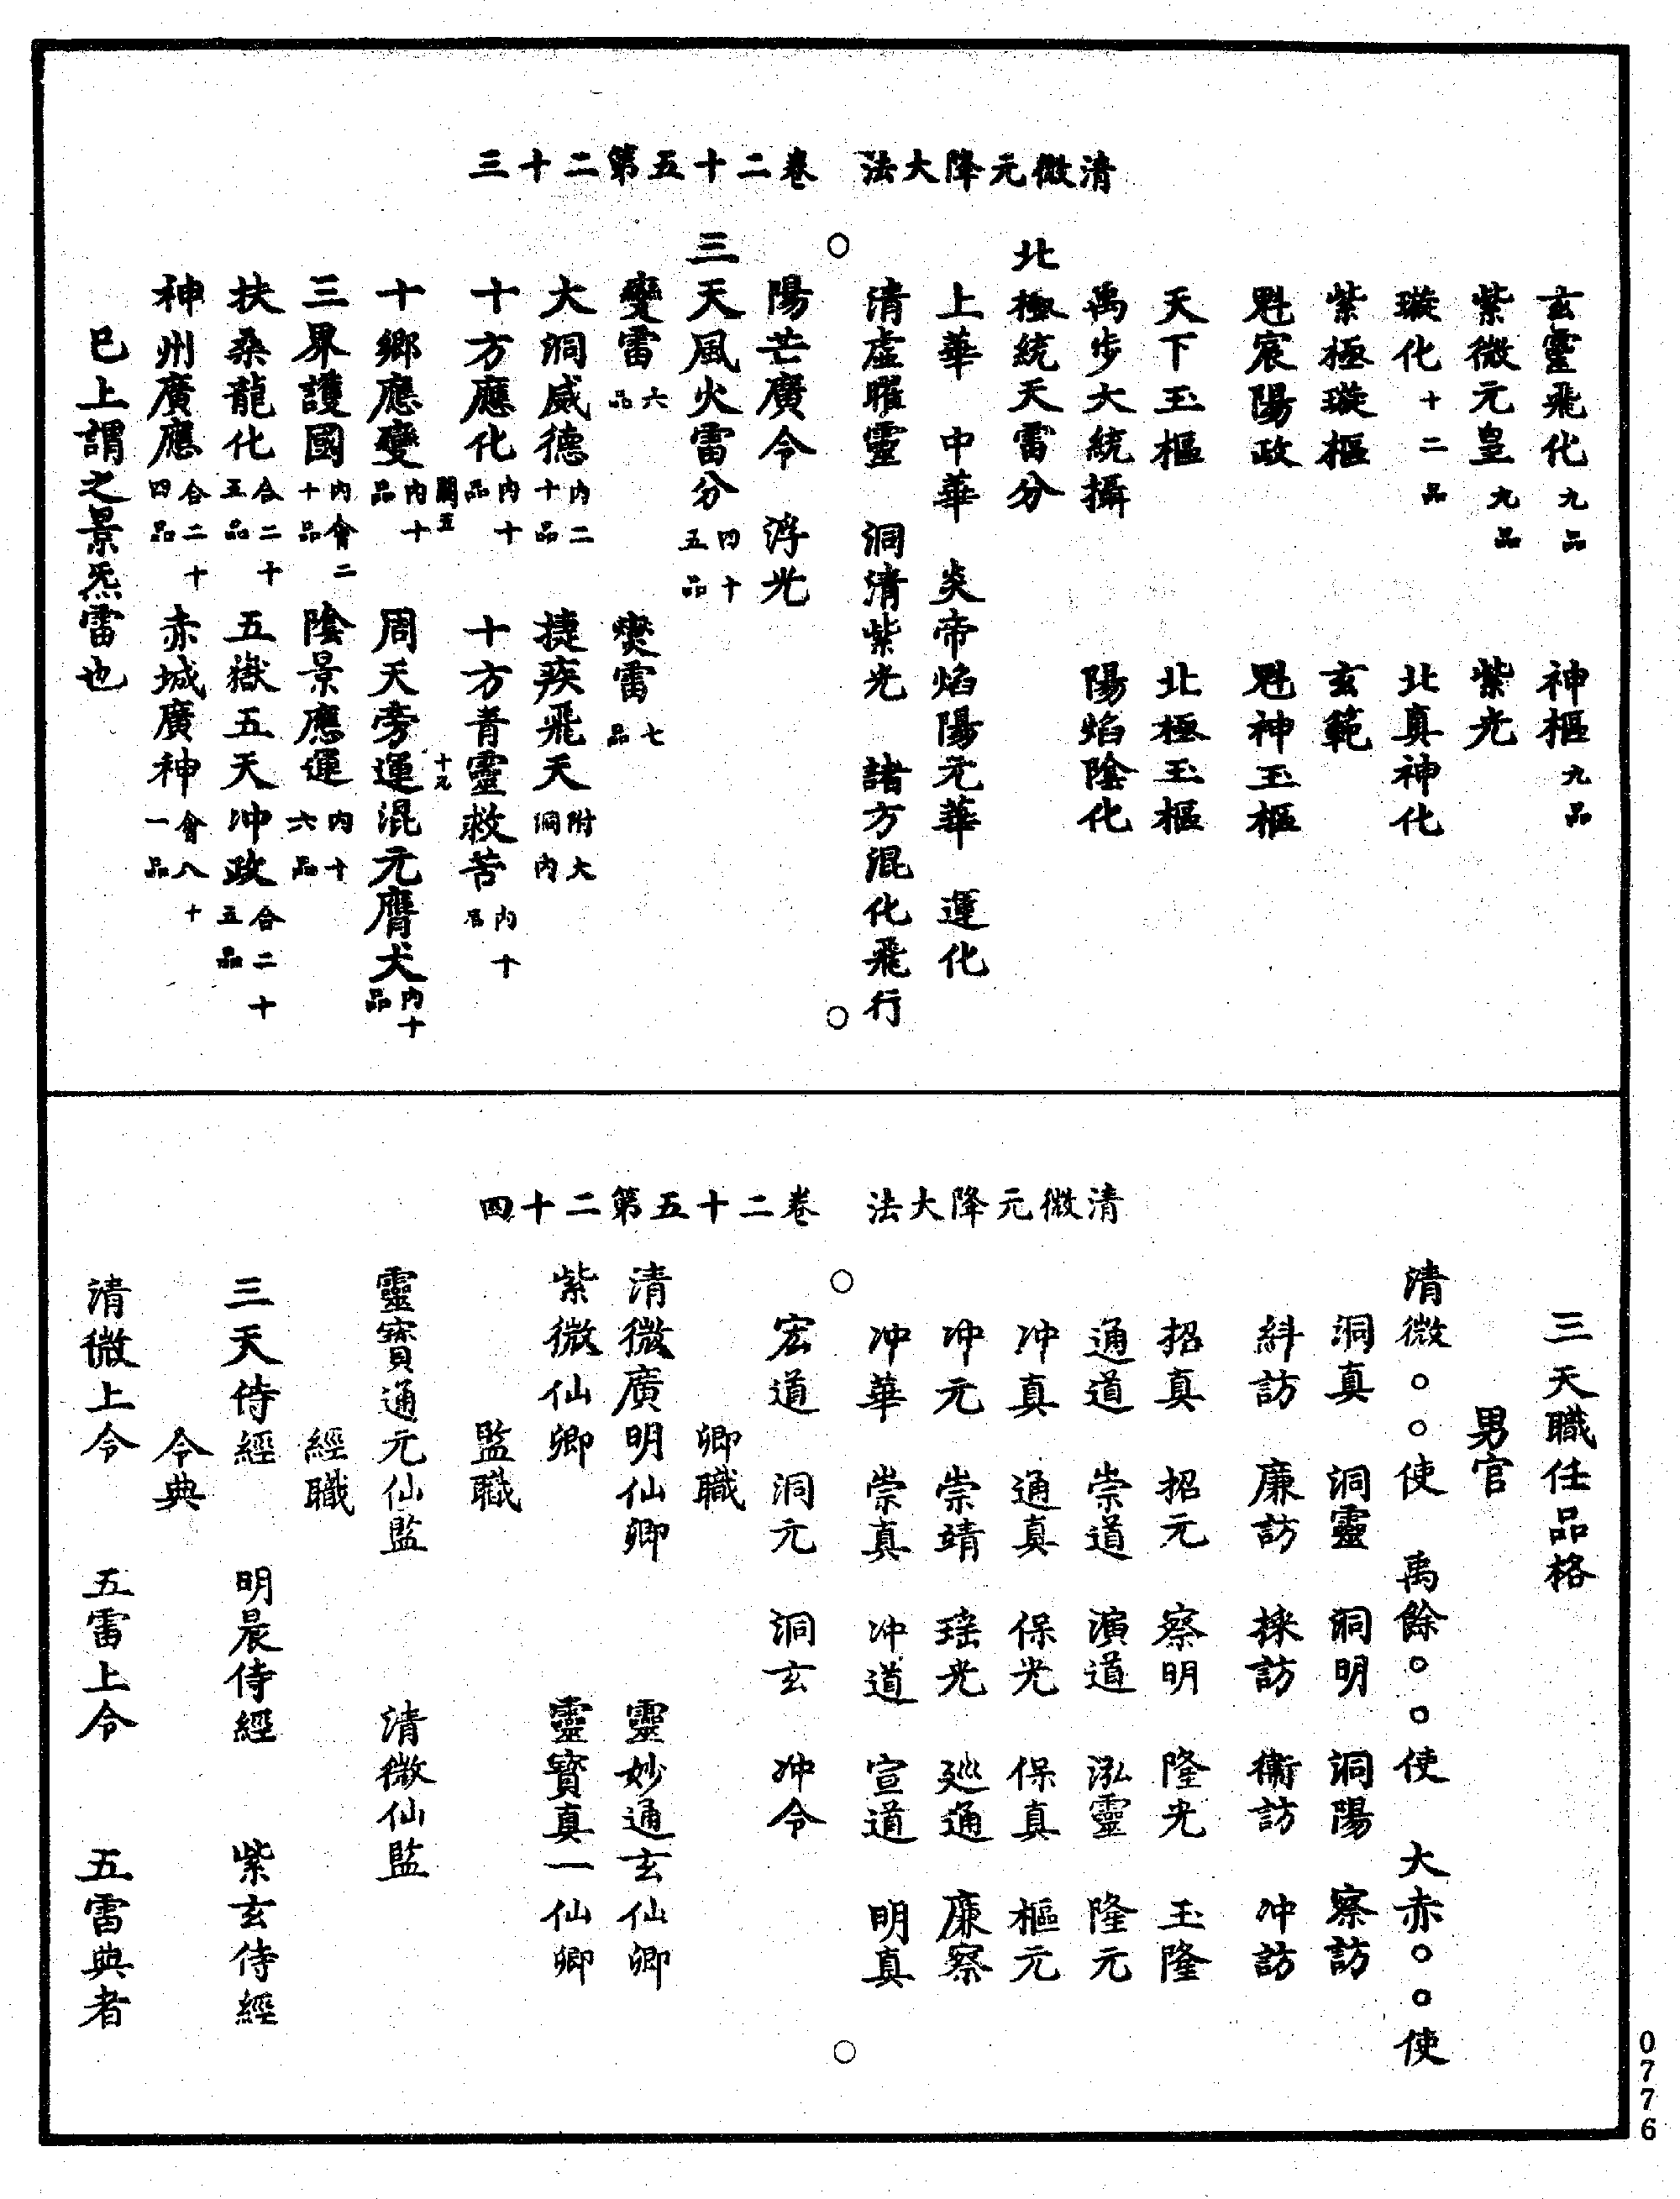 清微元降大法　卷二十五第二十三
玄靈飛化九品　神樞九品
紫微元皇九品　紫光
璇化十二品　北真神化
紫極璇樞　玄範
魁宸陽政　魁神玉樞
天下玉樞　北極玉樞
禹步大統攝　陽焰陰化
北極統天雷分
上華　中華　炎帝焰陽元華　運化
清虛曜靈　洞清紫光　諸方混化飛行
陽芒廣令　浮光
三天風火雷分四十五品
變雷六品　燮雷七品
大洞威德内二十品　捷疾飛天附大洞内
十方應化内十品　十方青靈救苦内十
十鄉應變内十品　周天旁運混元膺犬内十品
三界護國内會二十品　陰景應運内十六品
扶桑龍化合二十五品　五嶽五天冲政合二十五品
神州廣應合二十四品　赤城廣神會八十一品
巳上謂之景炁雷也
清微元降大法　卷二十五第二十四
三天職任品格
男官
清微○○使　禹餘○○使　大赤○○使
洞真　洞靈　洞明　洞陽　察訪
糾訪　廉訪　採訪　衛訪　冲訪
招真　招元　察明　隆光　玉隆
通道　崇道　演道　泓靈　隆元
冲真　通真　保光　保真　樞元
冲元　崇靖　瑤光　廵通　廉察
冲華　崇真　冲道　宣道　明真
宏道　洞元　洞玄　冲令
卿職
清微廣明仙卿　靈妙通玄仙卿
紫微仙卿　靈寶真一仙卿
監職
靈寶通元仙監　清微仙監
經職
三天侍經　明晨侍經　紫玄侍經
令典
清微上令　五雷上令　五雷典者
0776